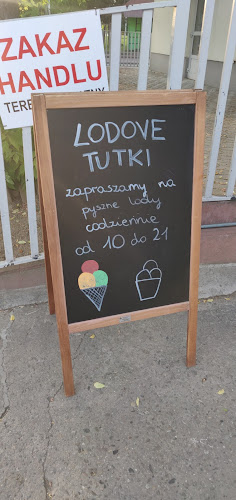 ZAKAZ
HANDLU
LODOVE
TUTKI
zapraszamy na
pyszne lody
codziennie
od 10 do 21